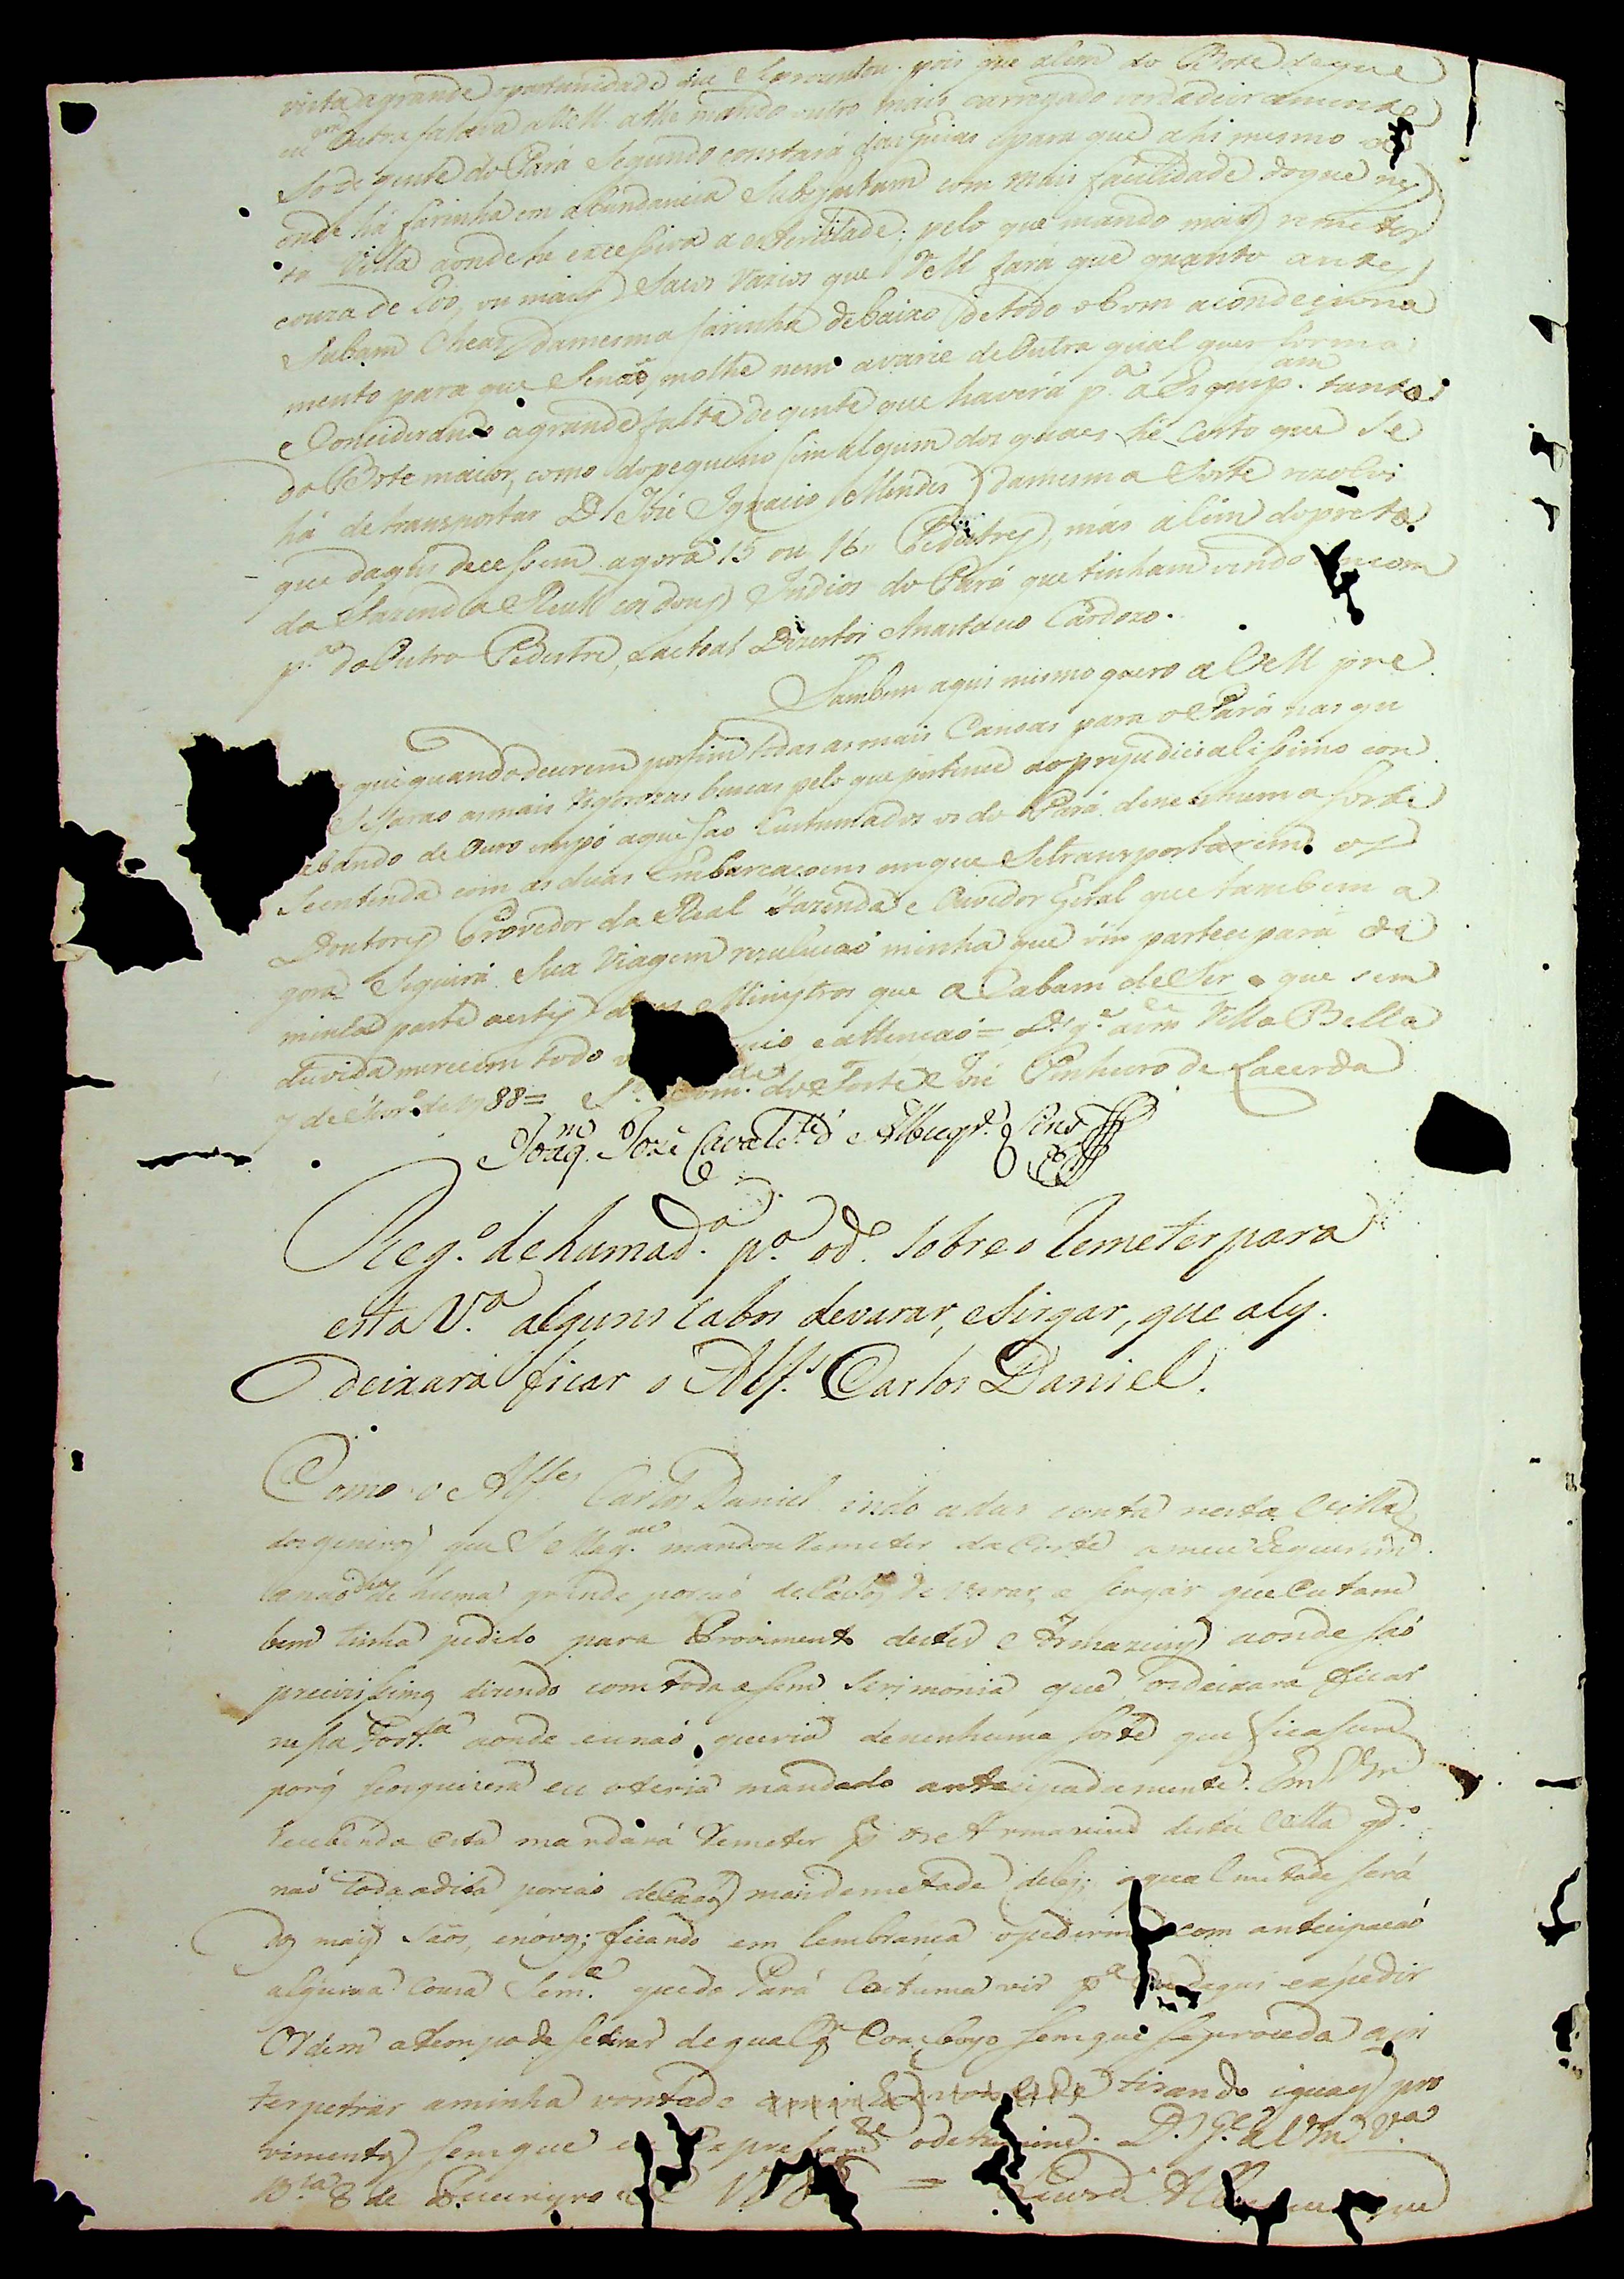 vista a grande oportunidade que se aprezentou pois que alem do Bote de que
em outra falava a VM. a the mando outro mais carregado verdadeiramente
só de gente do Pará segundo constará das guias e para que ahi mesmo
onde há farinha em abundancia subzistam com mais facilidade do que nes
ta Villa aonde he excessiva a esterilidade; pelo que mando mais remeter
couza de 200, ou mais Sacos vazios que VM fará que quanto antes
subam cheas da mesma farinha debaixo de todo o bom acondeciona
mento para que se naõ, molhe nem avarie de outra qual quer forma
e Conciderando a grande falta de gente que haverá p.ª a Esquip.am tanto
do Bote maior, como do pequeno (em algum dos quaes he certo que se
há de transportar D. José Ignacio Mendes) da mesma sorte rezolvi
que daqui decessem agora 15 ou 16 Pedestres, mas alem do preto
da Fazenda Real e os dous Indios do Pará que tinham vindo em com
p.ª do outro Pedestre, e actual Director Anastacio Cardozo.
Tambem aqui mesmo quero a VM pre
que quando decerem por fim todas as mais Canoas para o Pará nas qu
se faraõ as mais vigorozas buscas pelo que pertence ao prejudicialissimo con
bando de Ouro em pó a que saõ custumados os do Pará de nenhuma sorte
se entenda com as duas Embarcaçoens em que se transportarem os
Doutores Provedor da Real Fazenda e Ouvidor Geral que tambem a
gora seguirá sua viagem rezoluçaõ minha que vm participará da
minha parte a estes dous Ministros que acabam de ser e que sem
duvida merecem todo o cio e attençaõ = D.s g.e a vm.ce Villa Bella
7 de Janr.o de 1788 = S.r Com.de do Forte José Pinheiro de Lacerda
Joaq.m José Cavalc.te d' Albuqr.e Lins
Reg.o de huma d.a p.a o d.o sobre o remeter para
esta V.a alguns cabos de varar, e sirgar, que aly
deixara ficar o Alf.s Carlos Daniel.
Como o Alf.es Carlos Daniel indo a dar conta nesta Villa
dos generos que S Mag.e mandou remeter da Corte a meu requerim.to
a naõ deu de huma grande porçaõ de Cabos de varar, e sirgar que eu tam
bem tinha pedido para Provimento destes Armazens aonde saõ
precizissimos dizendo com toda a sem serimonia que os deixara ficar
nessa Fort.za aonde eu naõ queria de nenhuma sorte que ficassem
porq̃ se os quizera eu o teria mandado antecipadamente. Em VM
recebendo esta mandará remeter p.a os Armazens desta Villa q.do
naõ toda a dita porçaõ de Cabos mais de metade deles; a qual metade será
dos mais saõs, e novos; ficando em lembrança o pedirme com anticipaçaõ
alguma couza sem.e que do Pará custuma vir p.a eu daqui expedir
Ordem a tempo de se tirar de qualq.r Comboyo sem que se proceda a in
terpetrar a minha vontade tirando iguaes pro
vimentos sem que eu expressam.te o determine. D.s g.e a VM V.a
B.la 8 de Janeiro de 17 = Luis d' Albuquerque